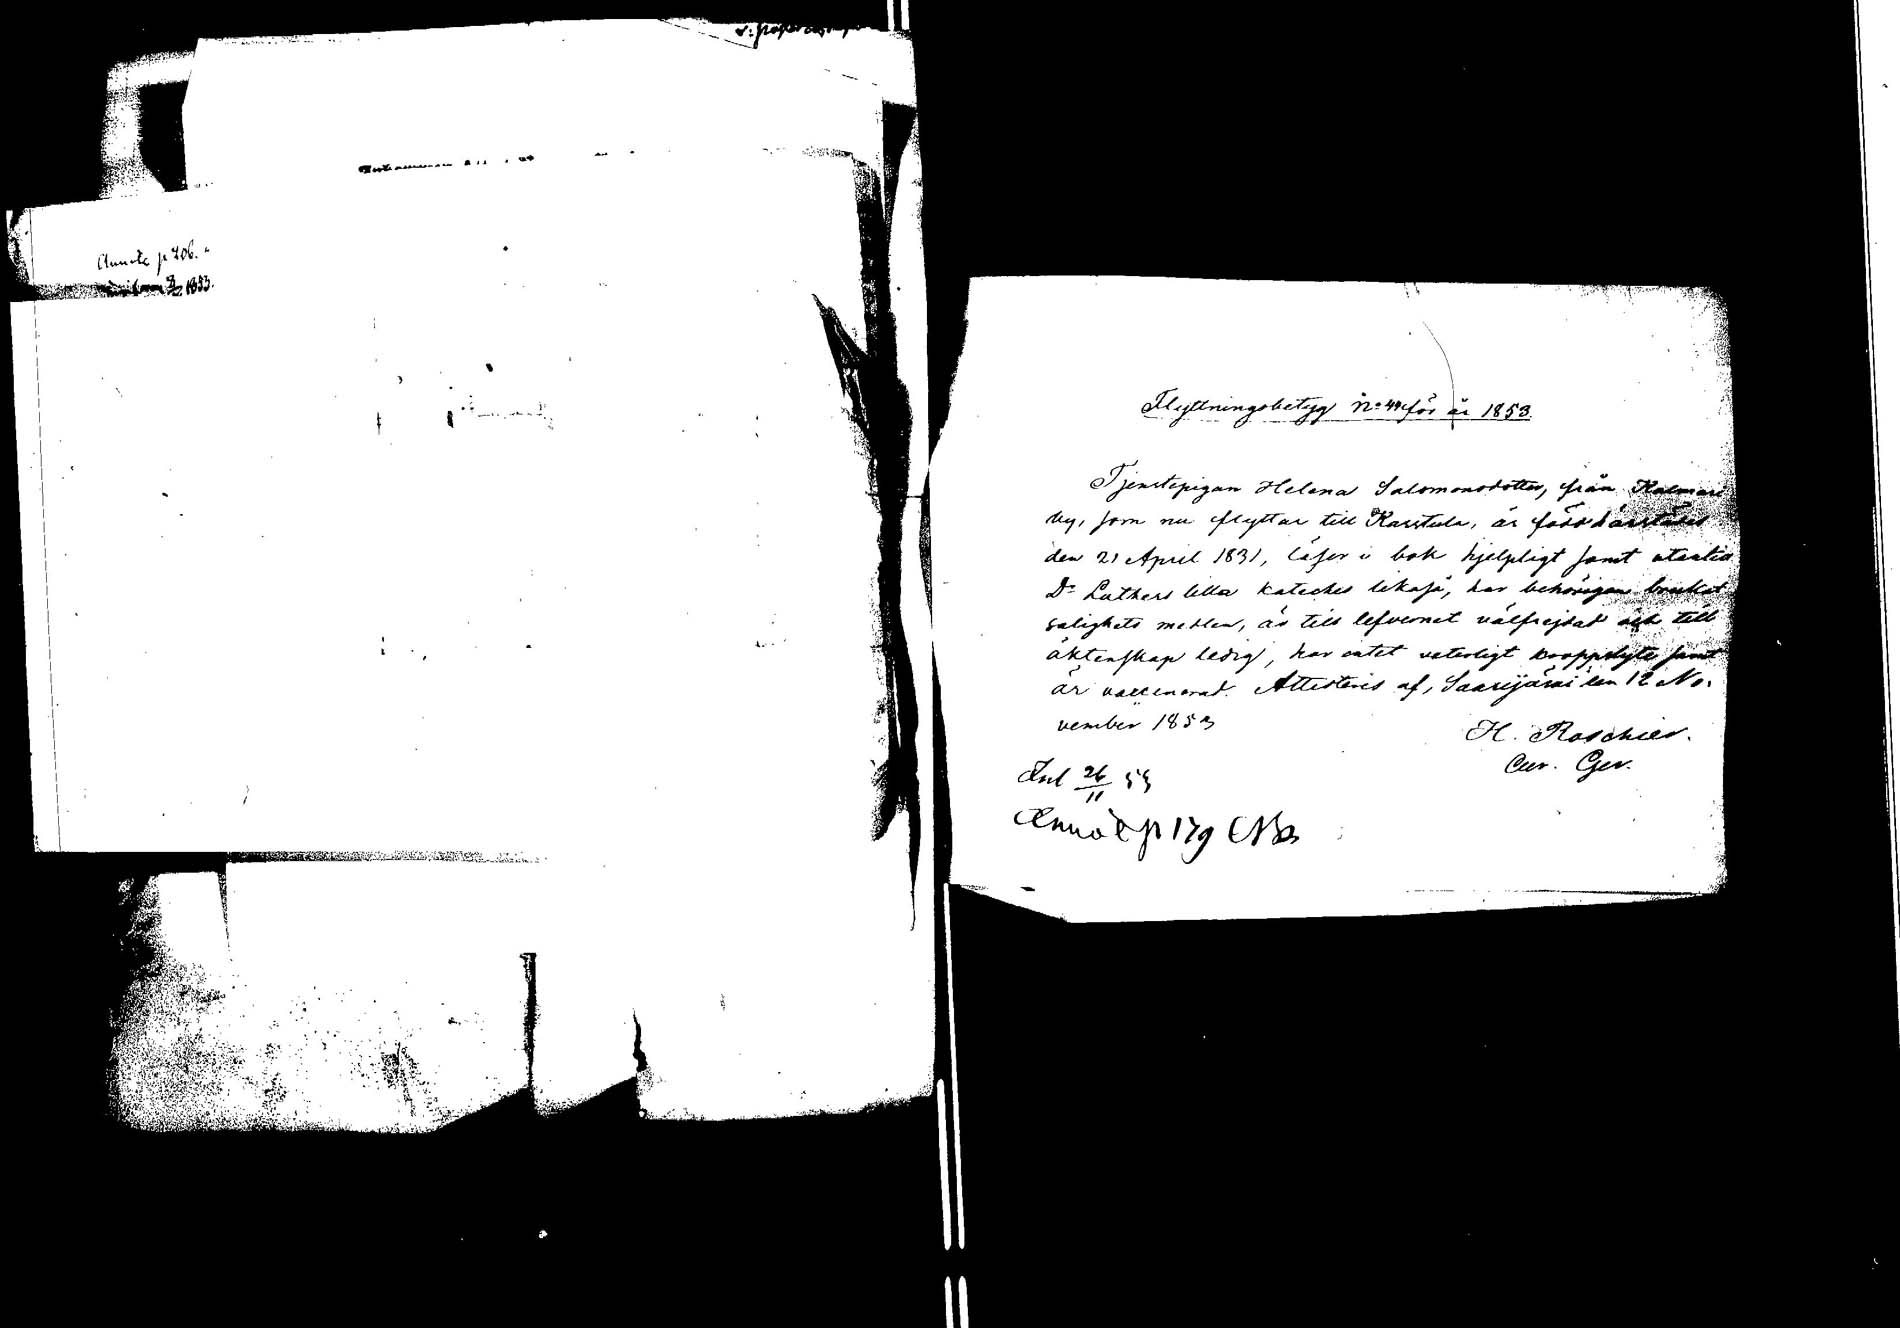 Annote p 206.
1853.
Flyttningsbetyg No 44 för år 1853.
Tjenstepigan Helena Salomonsdotter, från Kalmari
by, som nu flyttar till Karstula, är född härstädes
den 21 April 1831, läser i bok hjelpligt samt utantill
Dr Luthers lilla kateches likaså, har behörigen brukat
salighets medlen, är till lefvernet välfrejdad och till
äktenskap ledig, har intet veterligt kroppslyte samt
är vaccinerad. Attesteras af, Saarijärvi den 12 No-
vember 1853
H. Roschier.
Cur. Ger.
Inl 26/11 53
Annot p 179